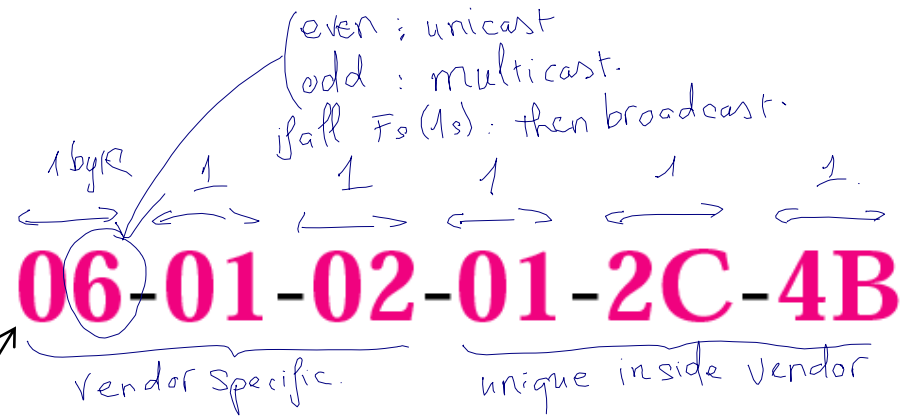 even : unicast
odd : multicast.
if all Fs (1s) : then broadcast.
1 byte 1 1 1 1 1.
06-01-02-01-2C-4B
vendor specific. unique inside vendor